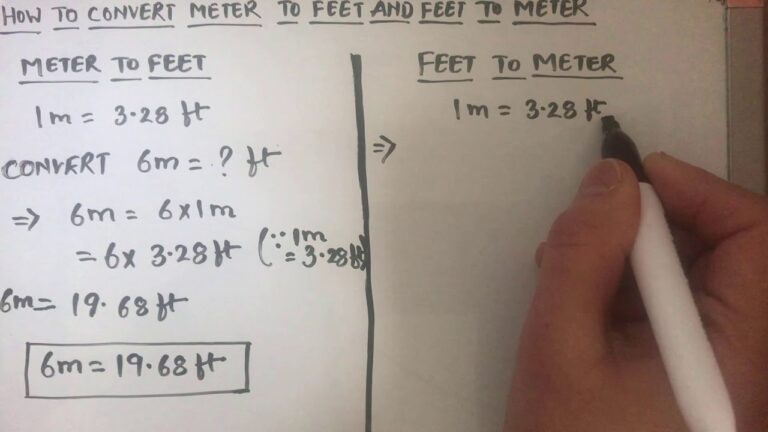 HOW TO CONVERT METER TO FEET AND FEET TO METER
METER TO FEET
1m = 3.28 ft
CONVERT 6m = ? ft
⇒ 6m = 6x1m
= 6x 3.28 ft (∵ 1m
= 3.28 ft)
6m = 19.68 ft
6m = 19.68 ft
FEET TO METER
1m = 3.28 ft
⇒